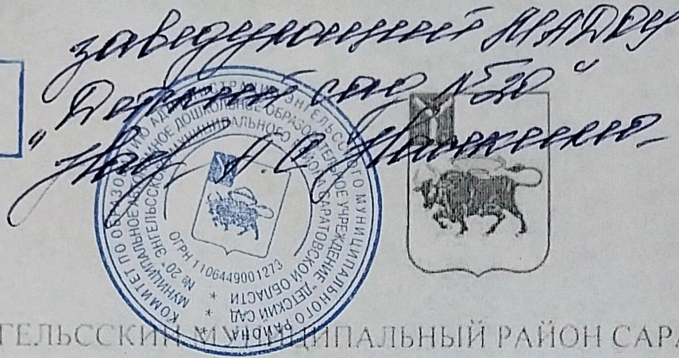 заведующий МАДОУ
"Детский сад №20"
КОМИТЕТ ПО ОБРАЗОВАНИЮ АДМИНИСТРАЦИИ ЭНГЕЛЬССКОГО МУНИЦИПАЛЬНОГО РАЙОНА
МУНИЦИПАЛЬНОЕ ДОШКОЛЬНОЕ ОБРАЗОВАТЕЛЬНОЕ УЧРЕЖДЕНИЕ "ДЕТСКИЙ САД
№ 20 ЭНГЕЛЬССКОГО МУНИЦИПАЛЬНОГО РАЙОНА САРАТОВСКОЙ ОБЛАСТИ
ОГРН 1106449001273
ГЕЛЬССКИЙ МУНИЦИПАЛЬНЫЙ РАЙОН САРА